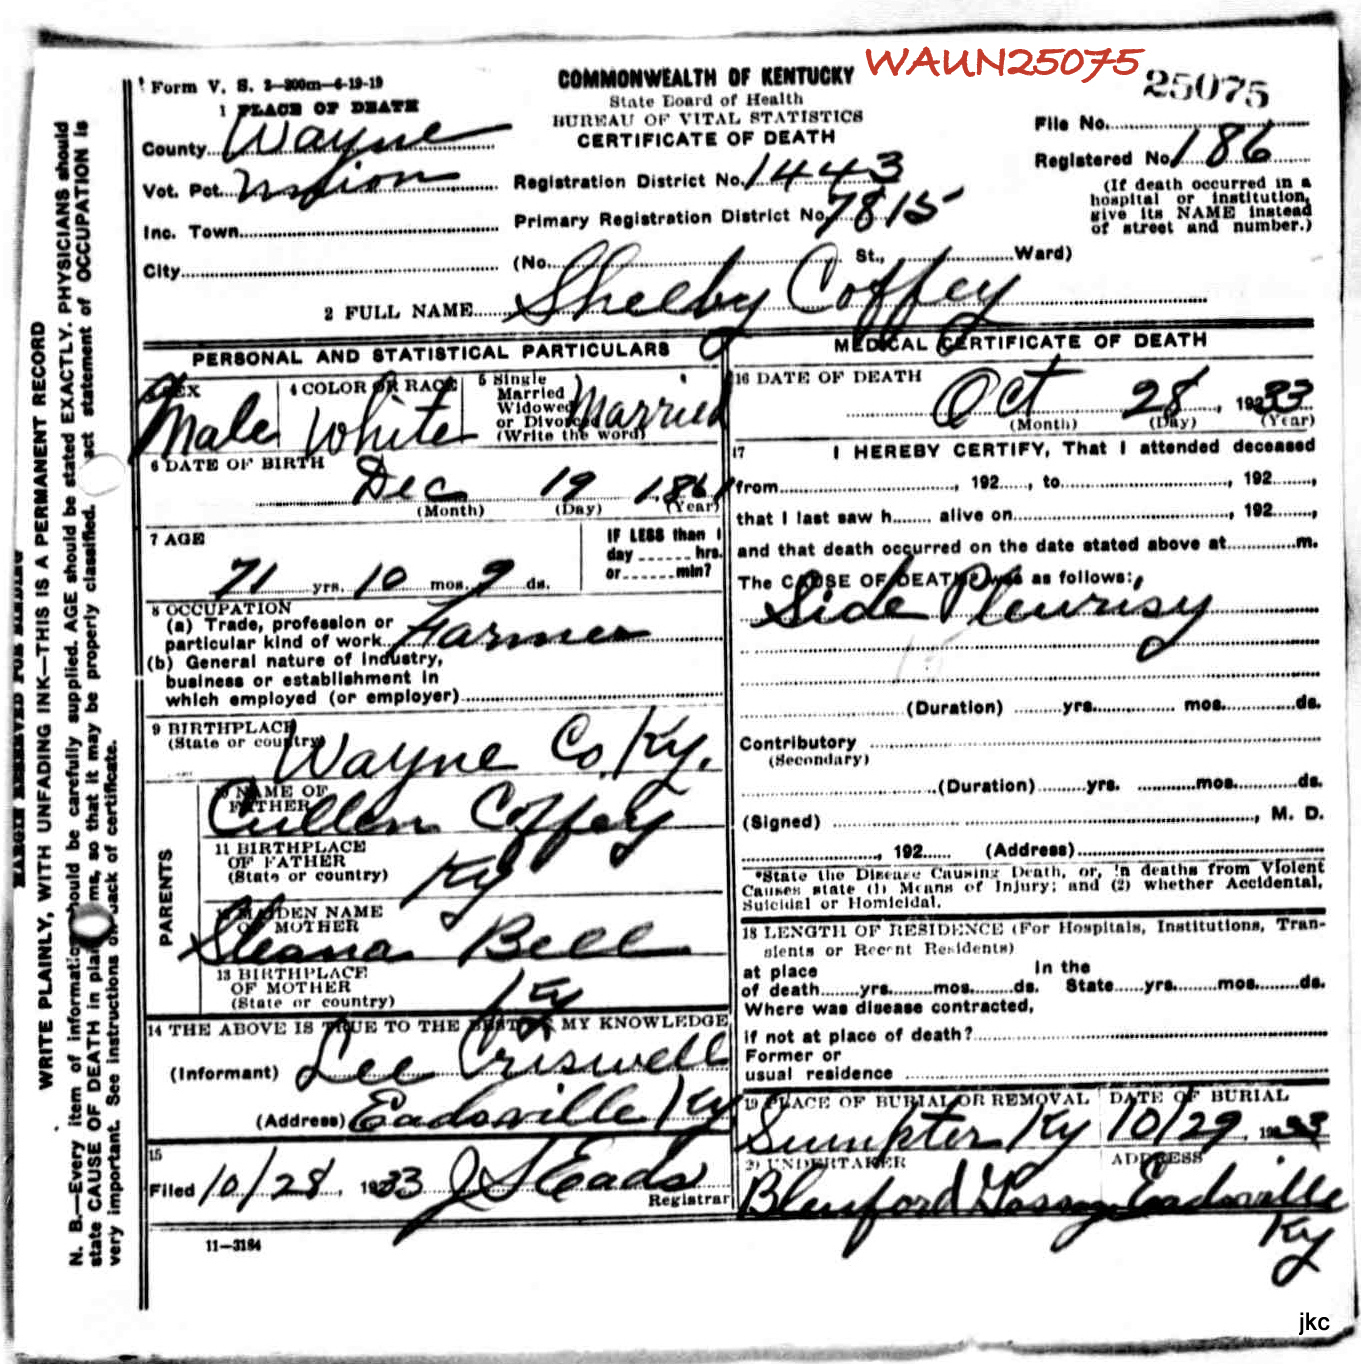 WAUN25075
25075
Form V. S. 2—200m—6-19-19
COMMONWEALTH OF KENTUCKY
State Board of Health
BUREAU OF VITAL STATISTICS
CERTIFICATE OF DEATH
1 PLACE OF DEATH
County Wayne
Vot. Pct.
Inc. Town
City
File No.
Registered No. 186
(If death occurred in a
hospital or institution,
give its NAME instead
of street and number.)
Registration District No. 1443
Primary Registration District No. 7815
(No. St., Ward)
2 FULL NAME Shelby Coffey
PERSONAL AND STATISTICAL PARTICULARS
SEX
Male
4 COLOR OR RACE
White
5 Single
Married
Widowed
or Divorced
(Write the word)
Married
6 DATE OF BIRTH
Dec 19 1861
(Month) (Day) (Year)
7 AGE
71 yrs. 10 mos. 9 ds.
IF LESS than 1
day hrs.
or min?
8 OCCUPATION
(a) Trade, profession or
particular kind of work Farmer
(b) General nature of industry,
business or establishment in
which employed (or employer)
9 BIRTHPLACE
(State or country)
Wayne Co. Ky.
PARENTS
10 NAME OF
FATHER
Cullen Coffey
11 BIRTHPLACE
OF FATHER
(State or country)
Ky
12 MAIDEN NAME
OF MOTHER
Bell
13 BIRTHPLACE
OF MOTHER
(State or country)
Ky
14 THE ABOVE IS TRUE TO THE BEST OF MY KNOWLEDGE
(Informant) Lee Criswell
(Address) Eadsville Ky
15
Filed 10/28, 1933 J S Eads
Registrar
11—3184
MEDICAL CERTIFICATE OF DEATH
16 DATE OF DEATH
Oct 28, 1933
(Month) (Day) (Year)
17 I HEREBY CERTIFY, That I attended deceased
from , 192 , to , 192 ,
that I last saw h alive on , 192 ,
and that death occurred on the date stated above at m.
The CAUSE OF DEATH* was as follows:
Side Pleurisy
(Duration) yrs. mos. ds.
Contributory
(Secondary)
(Duration) yrs. mos. ds.
(Signed) , M. D.
, 192 (Address)
*State the Disease Causing Death, or, in deaths from Violent
Causes state (1) Means of Injury; and (2) whether Accidental,
Suicidal or Homicidal.
18 LENGTH OF RESIDENCE (For Hospitals, Institutions, Tran-
sients or Recent Residents)
at place In the
of death yrs. mos. ds. State yrs. mos. ds.
Where was disease contracted,
if not at place of death?
Former or
usual residence
19 PLACE OF BURIAL OR REMOVAL
Sumpter Ky
DATE OF BURIAL
10/29, 1933
20 UNDERTAKER
Blenford
ADDRESS
Eadsville
Ky
MARGIN RESERVED FOR BINDING
WRITE PLAINLY, WITH UNFADING INK—THIS IS A PERMANENT RECORD
N. B.—Every item of information should be carefully supplied. AGE should be stated EXACTLY. PHYSICIANS should
state CAUSE OF DEATH in plain terms, so that it may be properly classified. Exact statement of OCCUPATION is
very important. See instructions on back of certificate.
jkc